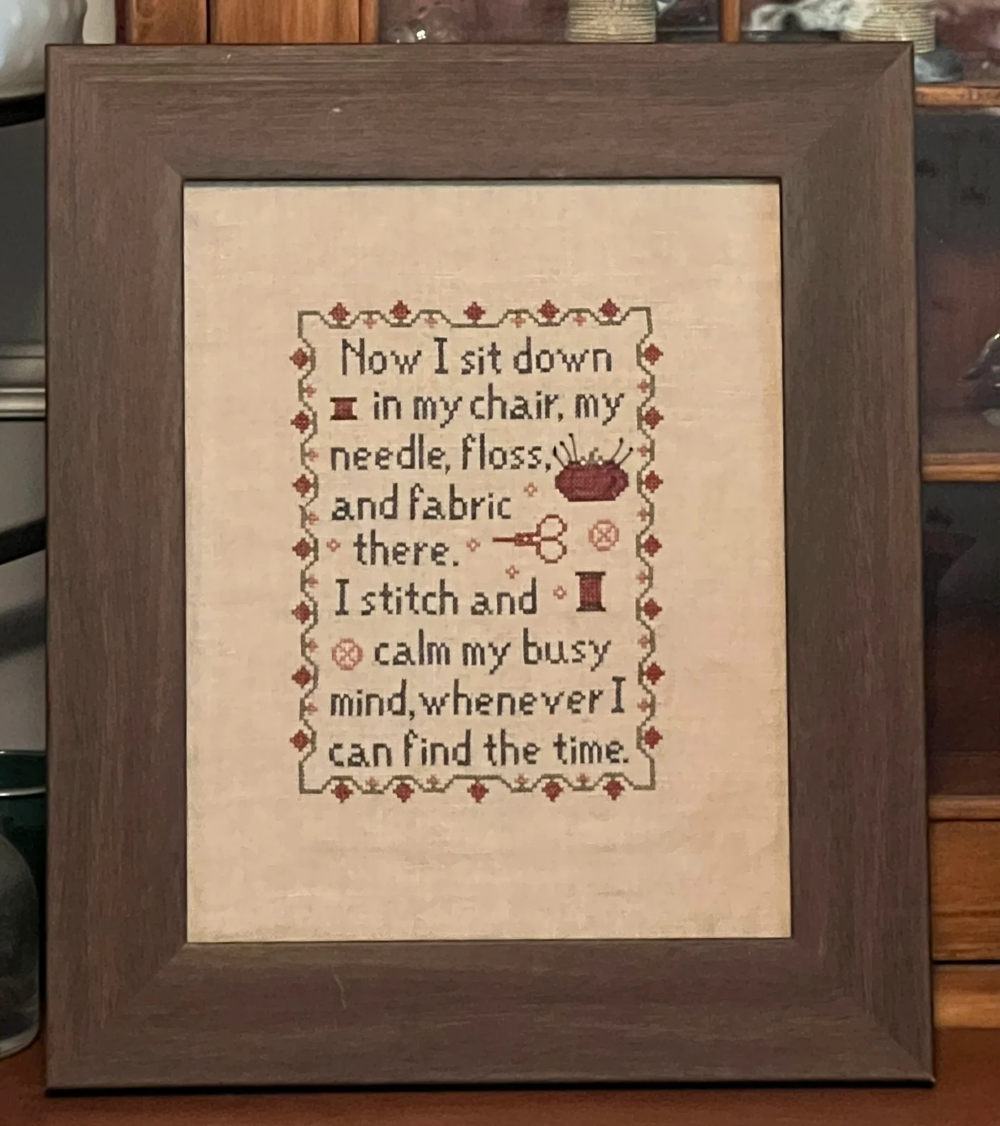 Now I sit down
in my chair, my
needle, floss,
and fabric
there.
I stitch and
calm my busy
mind, whenever I
can find the time.